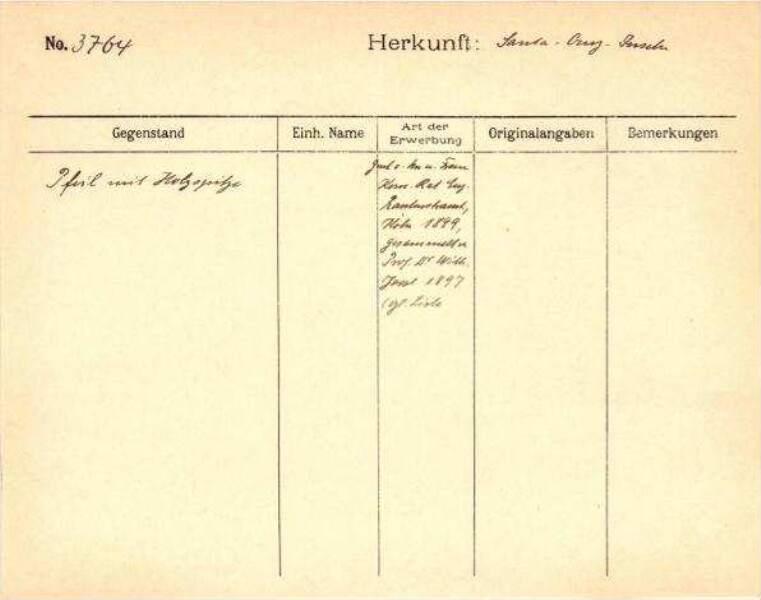 No. 3764
Herkunft: Santa-Cruz-Inseln
Gegenstand
Einh. Name
Art der
Erwerbung
Originalangaben
Bemerkungen
Pfeil mit Holzspitze
u. Frau
Kom. Rat Eug.
Rautenstrauch,
Köln 1899,
gesammelt v.
Prof. Dr Wilh.
Joest 1897
cgl. Liste